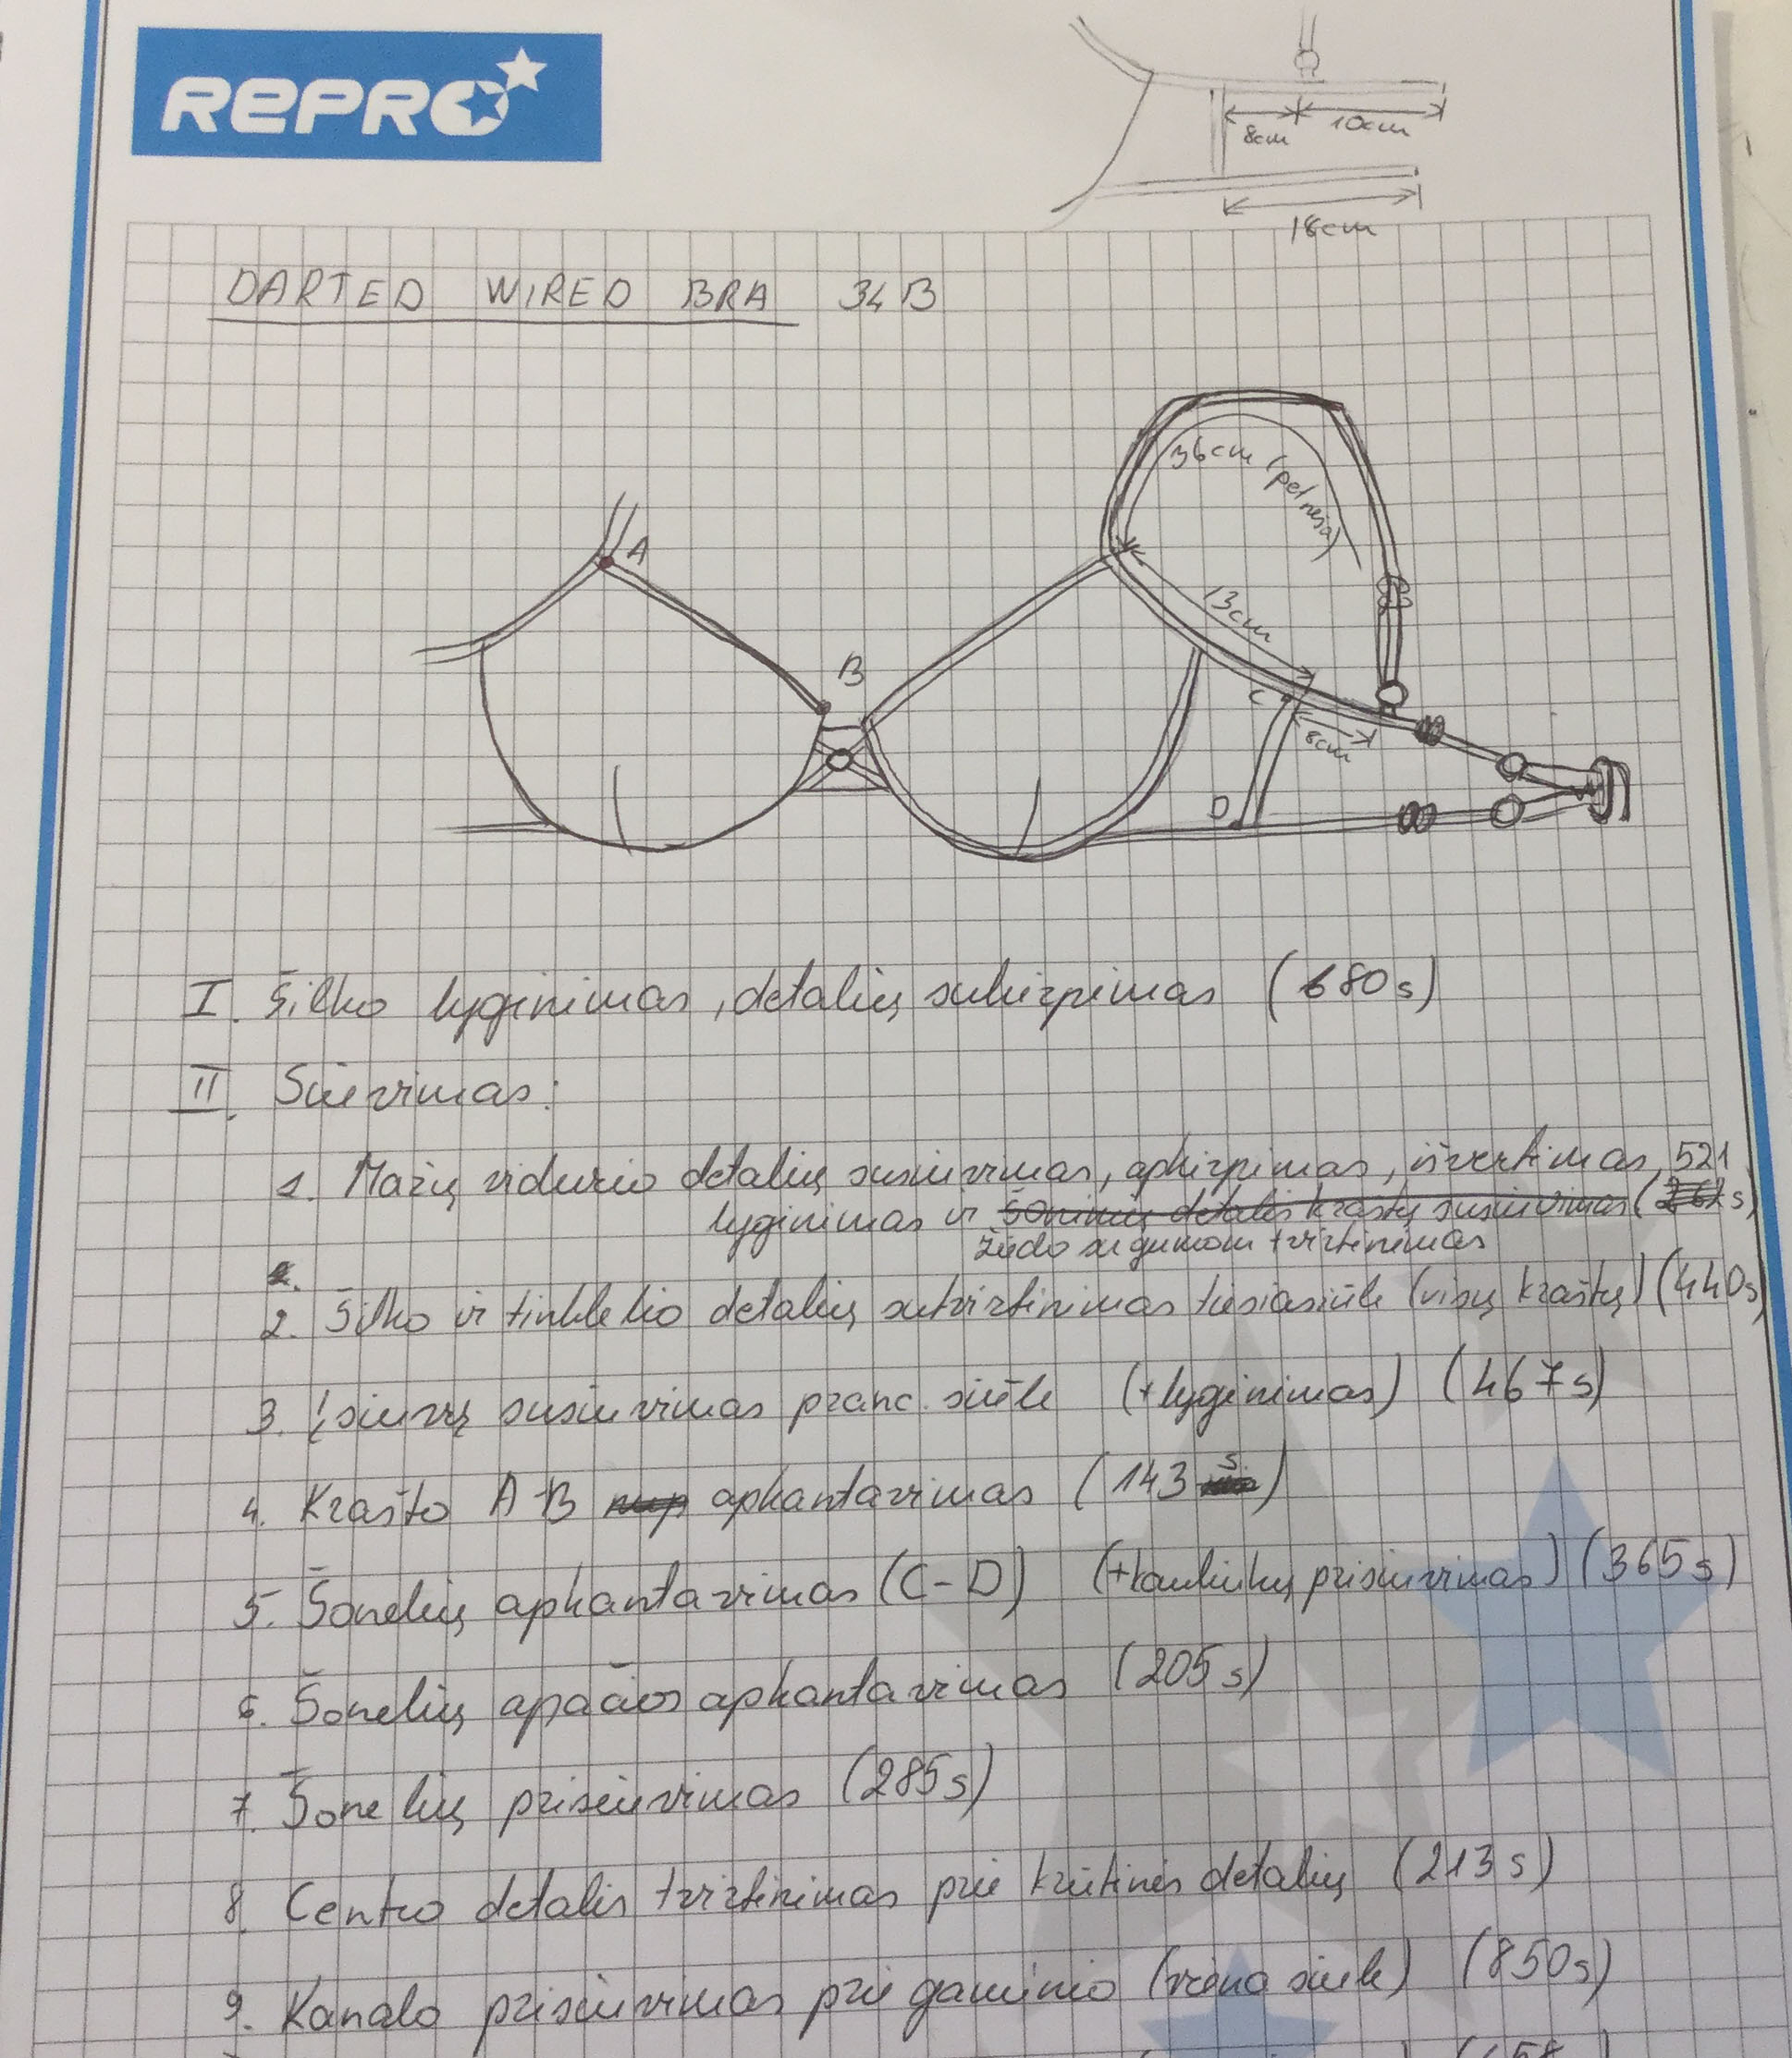 REPRO
8cm
10cm
18cm
DARTED WIRED BRA 34B
36cm (petnešа)
A
13cm
B
C
8cm
D
I. Šilko lyginimas, detalių sukirpimas (680s)
II. Siuvimas:
1. Mažų vidurio detalių susiuvimas, apkirpimas, išvertimas, 521
lyginimas ir šoninių detalių kraštų susiuvimas (262s)
žiedo su gumom tvirtinimas
2. Šilko ir tinklelio detalių sutvirtinimas tiesiasiūle (visų kraštų) (440s)
3. Įsiuvų susiuvimas pranc. siūle (+ lyginimas) (467s)
4. Krašto A-B apkantavimas (143 s)
5. Šonelių apkantavimas (C-D) (+kauliukų prisiuvimas) (365s)
6. Šonelių apačios apkantavimas (205s)
7. Šonelių prisiuvimas (285s)
8. Centro detalės tvirtinimas prie krūtinės detalių (213s)
9. Kanalo prisiuvimas prie gaminio (viena siūle) (850s)